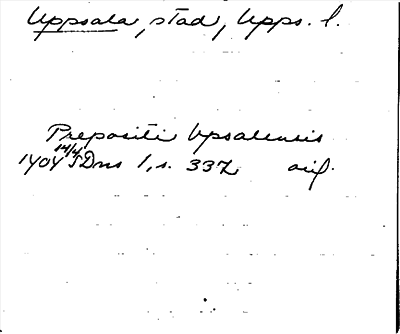 Uppsala, stad, Upps. l.
Prepositi Upsalensis
1404 14/4 SDns 1, s. 337 orig.